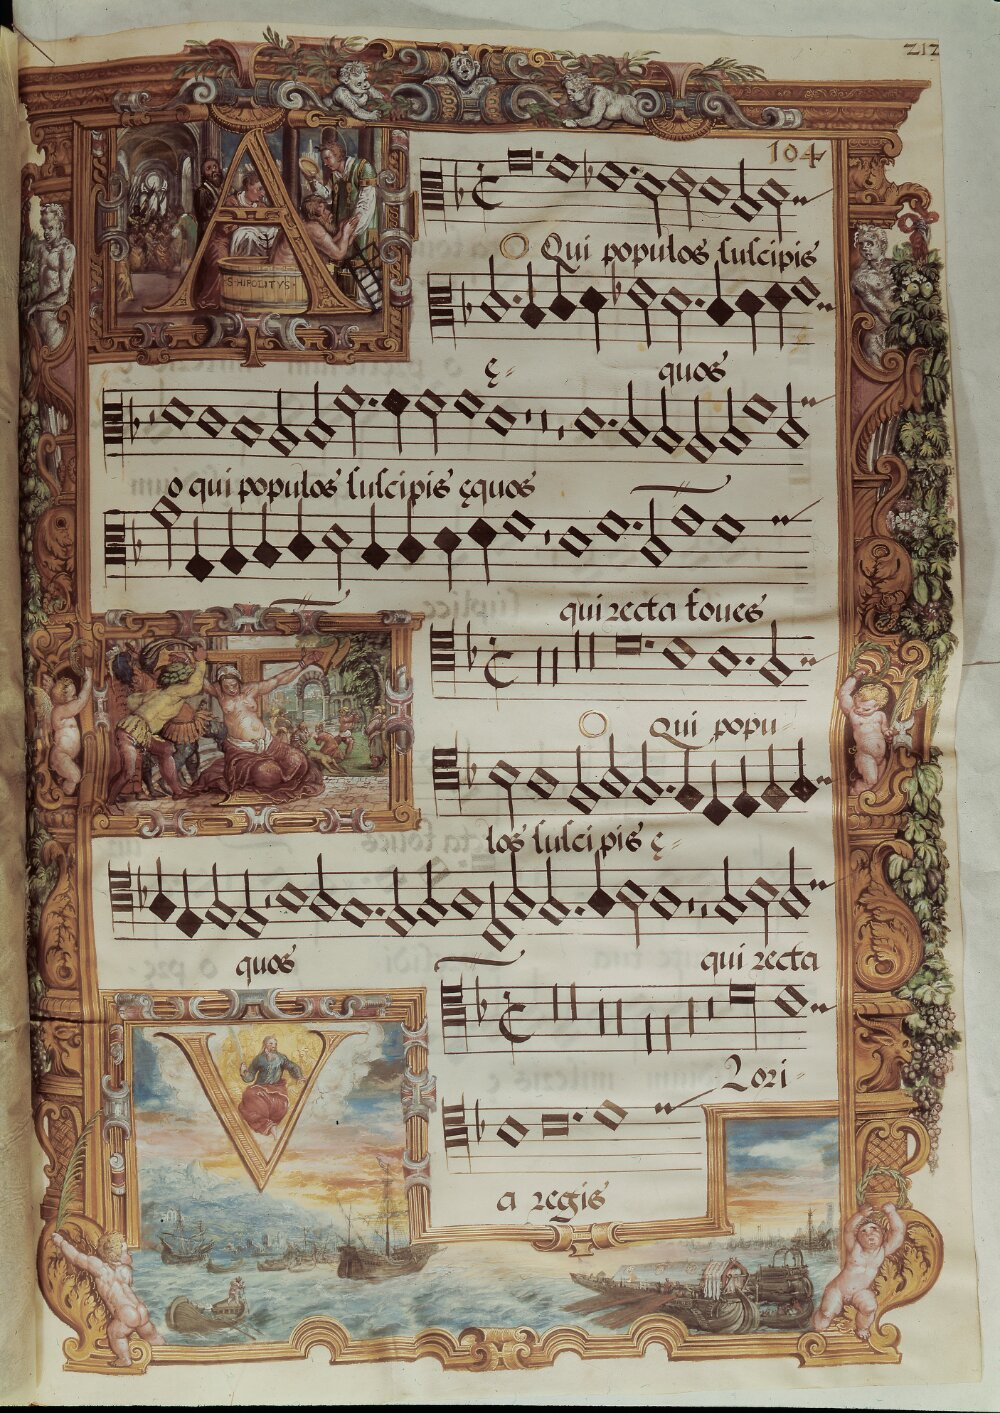 212
104
A
S·HIPOLITVS·
O Qui populos suscipis
ę- quos
o qui populos suscipis ęquos
qui recta foues
O Qui popu-
los suscipis ę-
quos qui recta
V
Lori-
a regis